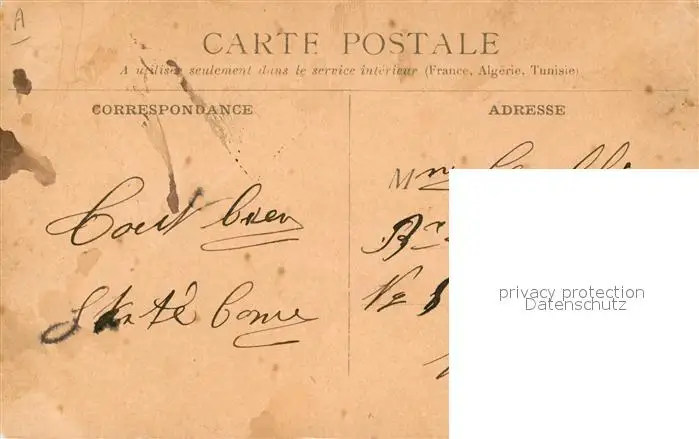 A
CARTE POSTALE
A utiliser seulement dans le service intérieur (France, Algérie, Tunisie)
CORRESPONDANCE
ADRESSE
Tout bien
Santé bonne
Mme
privacy protection
Datenschutz